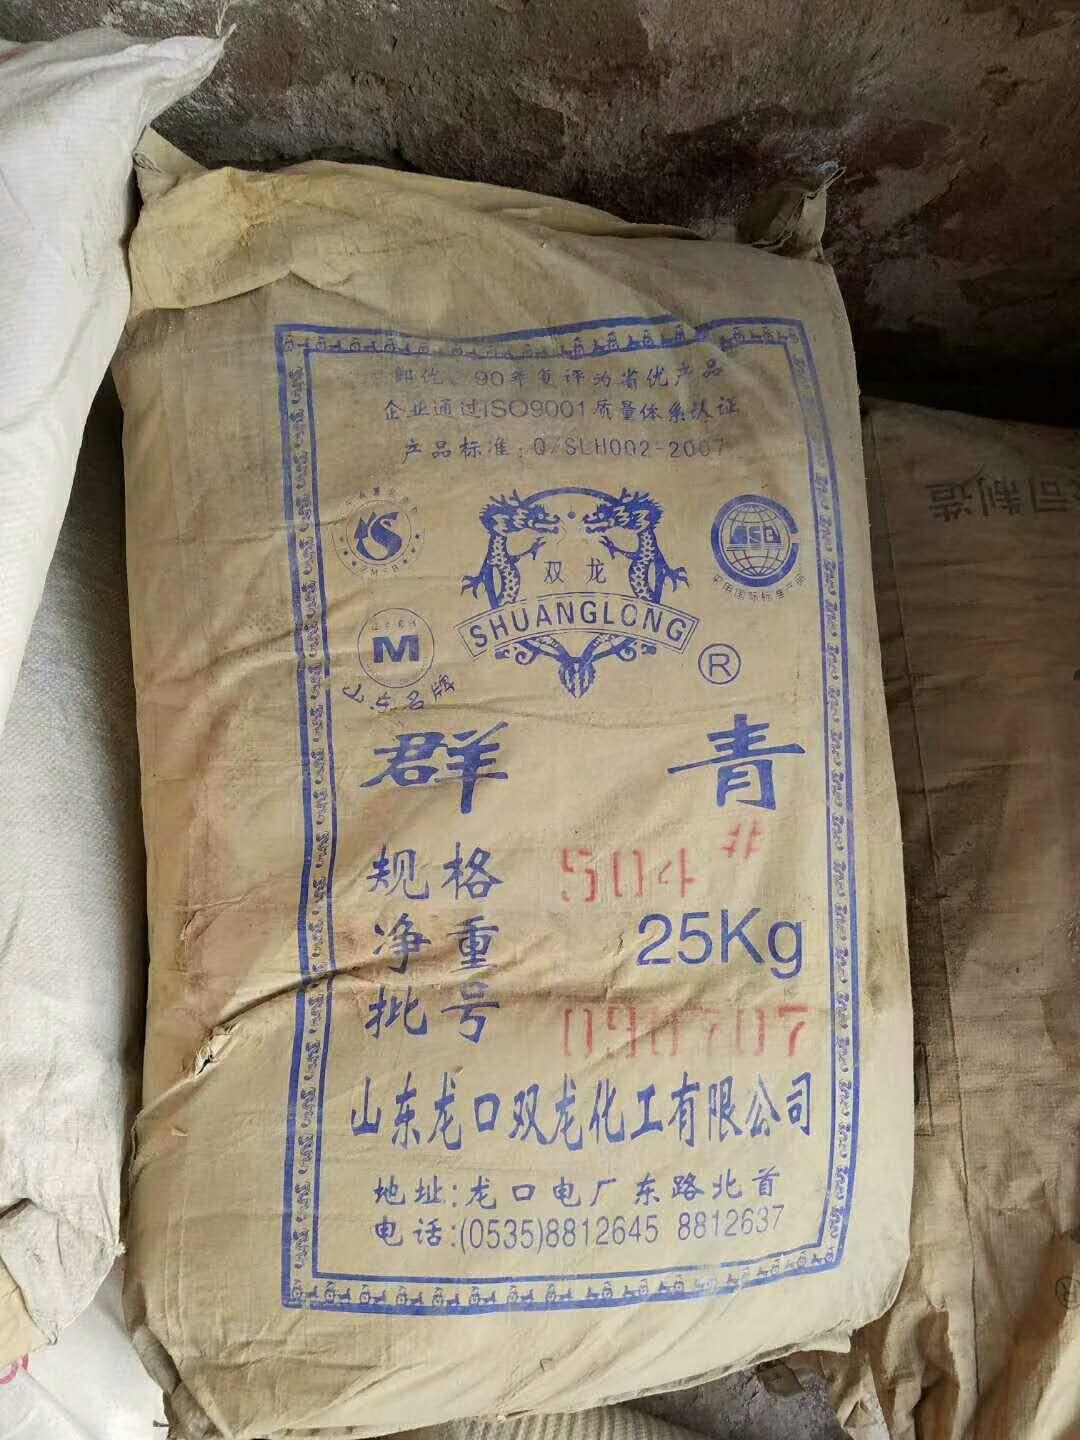 部优、90年复评为省优产品
企业通过ISO9001质量体系认证
产品标准:Q/SLH002-2007
双龙
SHUANGLONG
®
采用国际标准产品
ZM-B
M
山东名牌
群青
规格 504#
净重 25Kg
批号 090707
山东龙口双龙化工有限公司
地址:龙口电厂东路北首
电话:(0535)8812645 8812637
公司制造